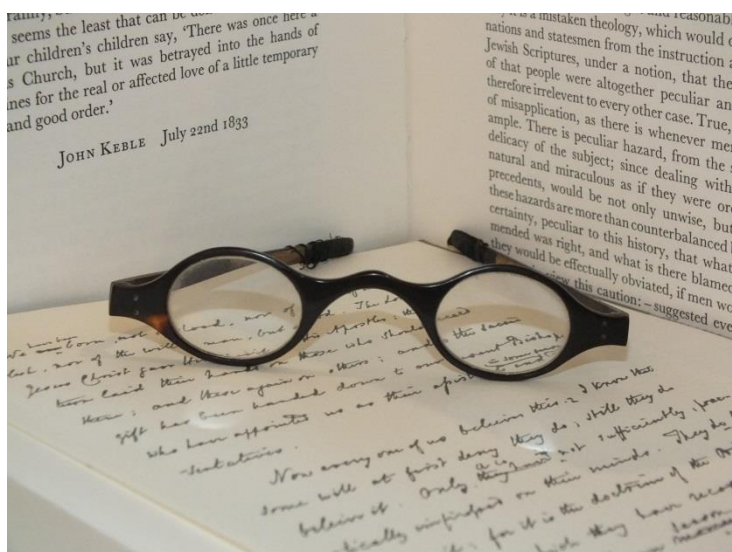 seems the least that can be
ur children's children say, 'There was once here a
s Church, but it was betrayed into the hands of
nes for the real or affected love of a little temporary
and good order.'
JOHN KEBLE July 22nd 1833
is a mistaken theology, which would
nations and statesmen from the instruction
Jewish Scriptures, under a notion, that the
of that people were altogether peculiar an
therefore irrelevent to every other case. True,
of misapplication, as there is whenever me
ample. There is peculiar hazard, from the
delicacy of the subject; since dealing with
natural and miraculous as if they were or
precedents, would be not only unwise, but
these hazards are more than counterbalanced
certainty, peculiar to this history, that what
mended was right, and what is there blamed
they would be effectually obviated, if men wo
view this caution: – suggested eve
born, not blood, nor of The
nor of the will man, but Apostles; the
Jesus Christ gave
laid their hands on those who should
them; and these again on others; and the sacred
gift has been handed down to our present Bishops
who have appointed us as their
-sentatives.
Now every one of us believes this. I know that
some will at first deny they do; still they do
believe it. Only, not sufficiently,
-tically impressed on their minds. They do
it; for it is the doctrine of the
which they have